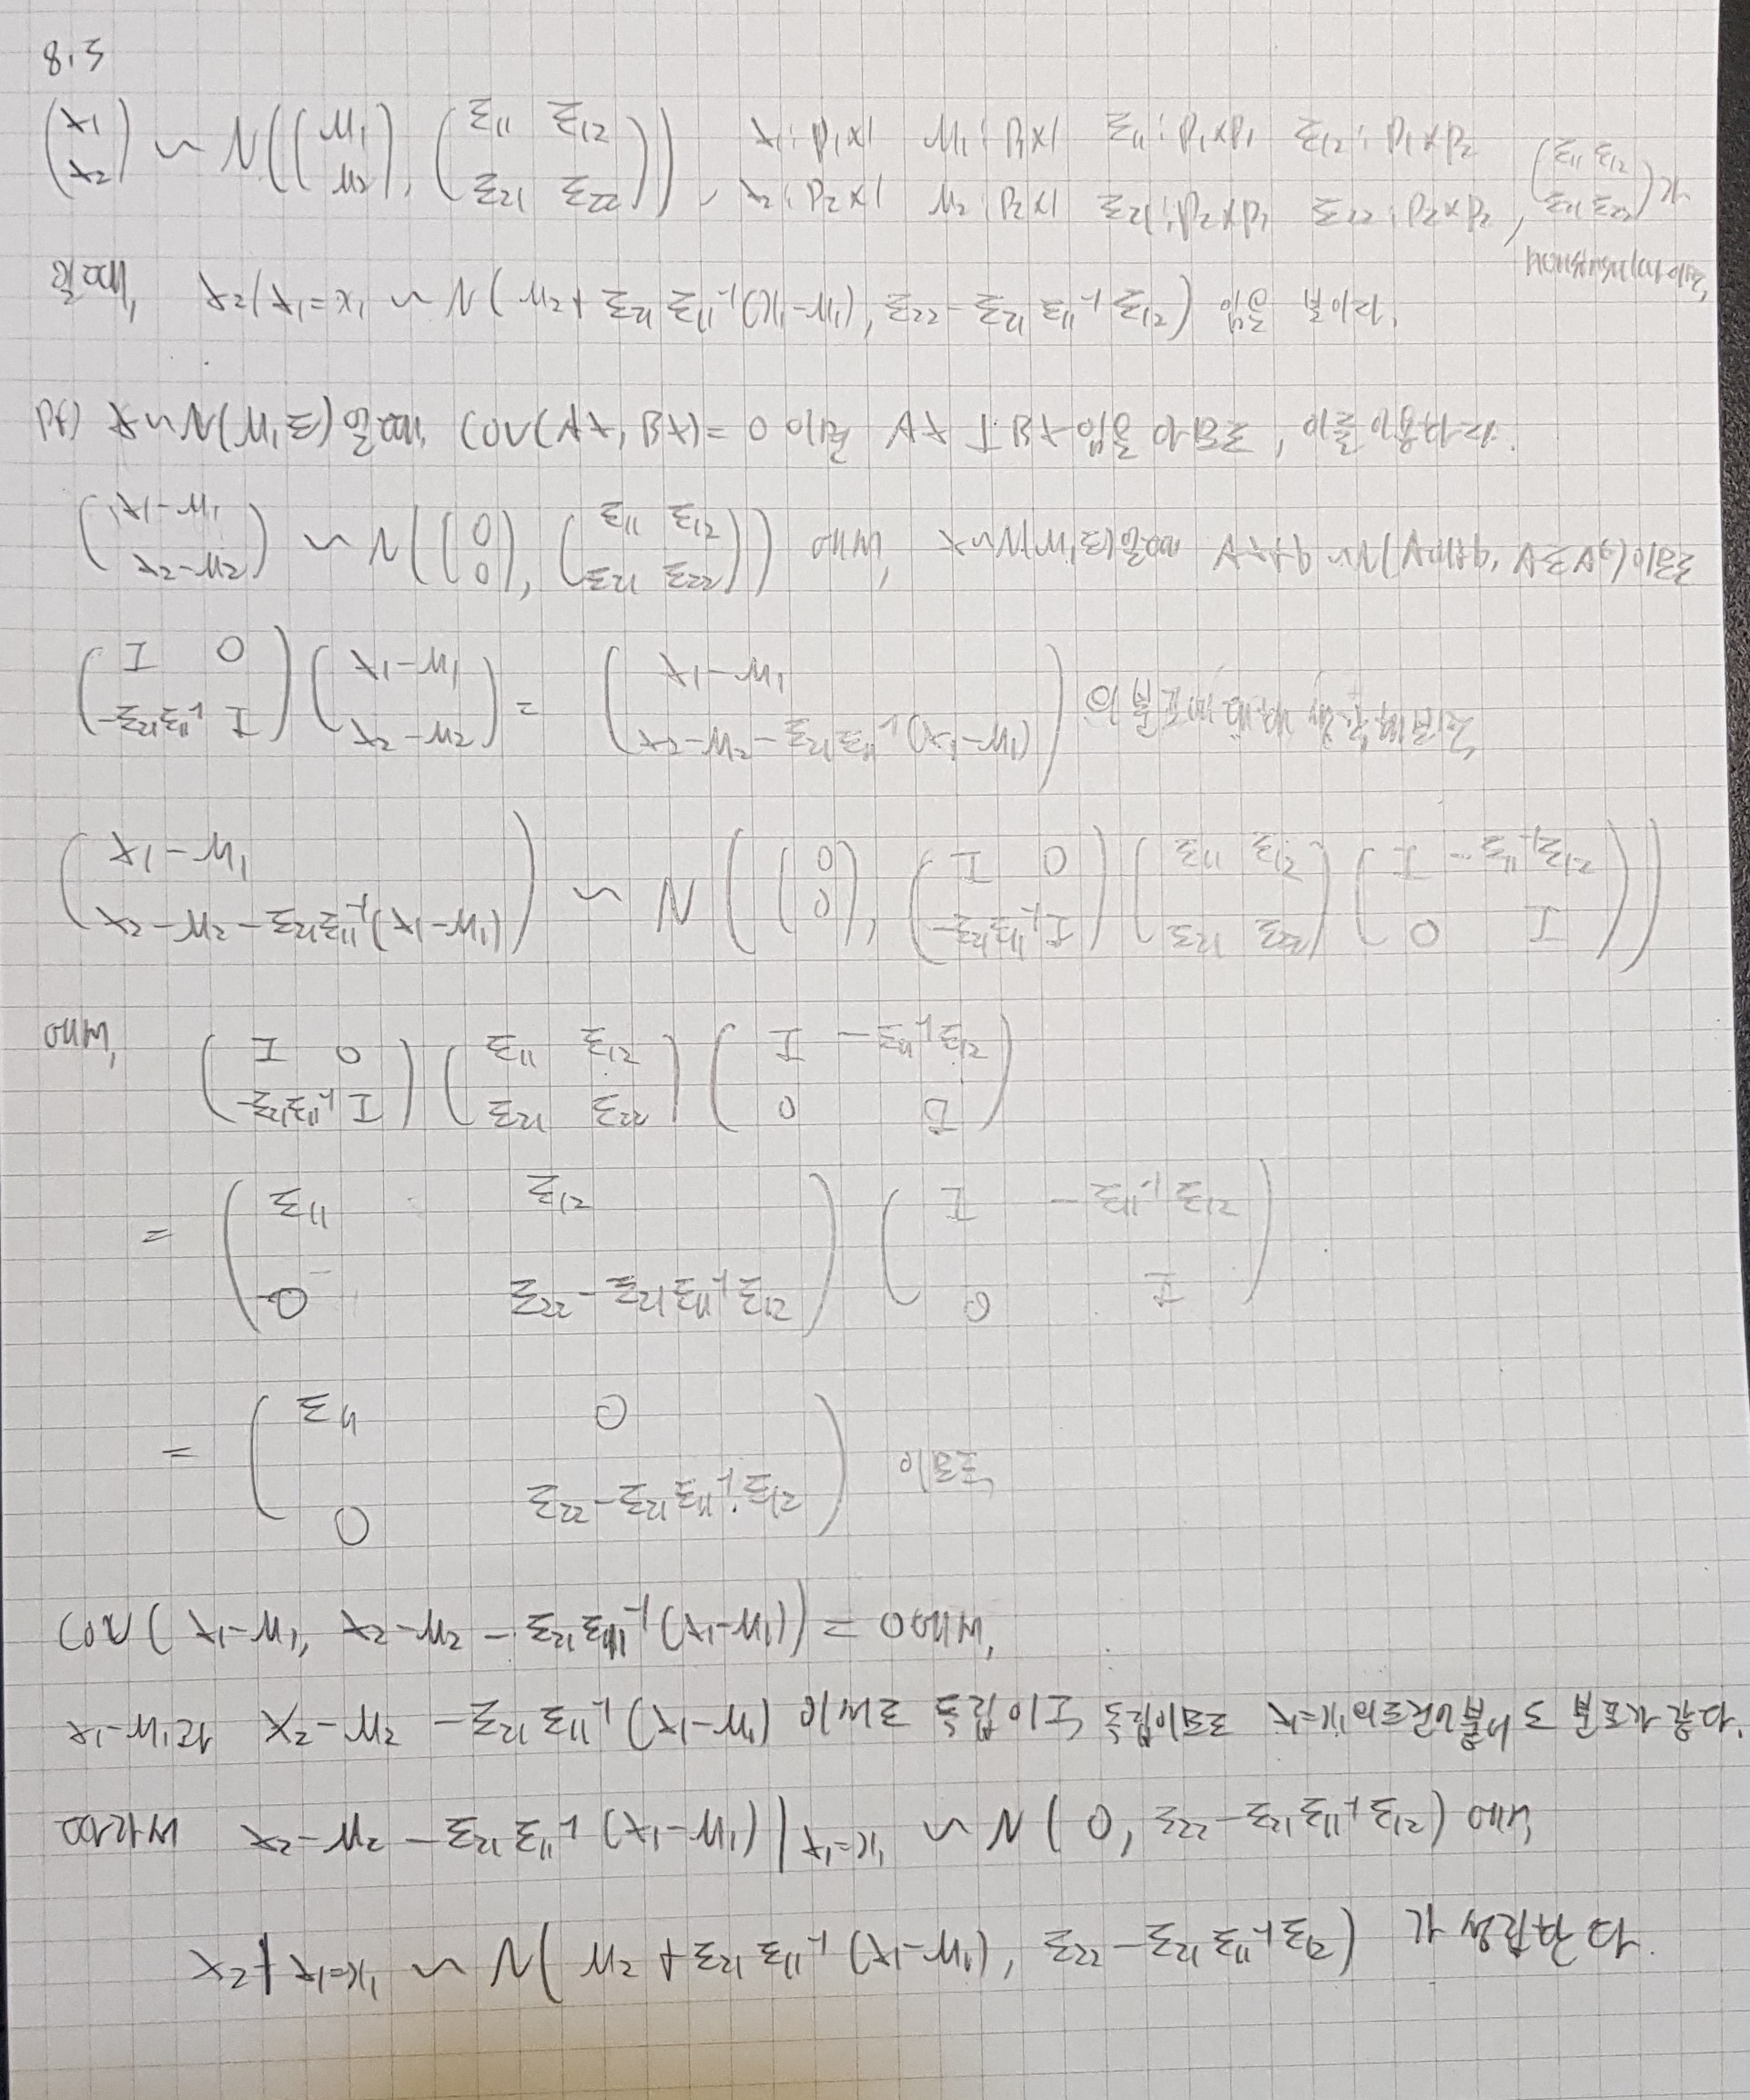 8.5
(X₁ X₂) ~ N((μ₁ μ₂), (Σ₁₁ Σ₁₂ Σ₂₁ Σ₂₂)), X₁: P₁×1 μ₁: P₁×1 Σ₁₁: P₁×P₁ Σ₁₂: P₁×P₂ X₂: P₂×1 μ₂: P₂×1 Σ₂₁: P₂×P₁ Σ₂₂: P₂×P₂, (Σ₁₁ Σ₁₂ Σ₂₁ Σ₂₂)가 nonsingular이면,
일때, X₂|X₁=x₁ ~ N(μ₂+Σ₂₁Σ₁₁⁻¹(x₁-μ₁), Σ₂₂-Σ₂₁Σ₁₁⁻¹Σ₁₂) 임을 보이라.
Pf) X~N(μ,Σ)일때, Cov(AX, BX)=0 이면 AX ⊥ BX임을 아므로, 이를 이용하라.
(X₁-μ₁ X₂-μ₂) ~ N((0 0), (Σ₁₁ Σ₁₂ Σ₂₁ Σ₂₂)) 에서, X~N(μ,Σ)일때 AX+b ~N(Aμ+b, AΣAᵗ)이므로
(I 0 -Σ₂₁Σ₁₁⁻¹ I)(X₁-μ₁ X₂-μ₂) = (X₁-μ₁ X₂-μ₂-Σ₂₁Σ₁₁⁻¹(X₁-μ₁))의 분포에 대해 생각해보면,
(X₁-μ₁ X₂-μ₂-Σ₂₁Σ₁₁⁻¹(X₁-μ₁)) ~ N((0 0), (I 0 -Σ₂₁Σ₁₁⁻¹ I)(Σ₁₁ Σ₁₂ Σ₂₁ Σ₂₂)(I -Σ₁₁⁻¹Σ₁₂ 0 I))
에서, (I 0 -Σ₂₁Σ₁₁⁻¹ I)(Σ₁₁ Σ₁₂ Σ₂₁ Σ₂₂)(I -Σ₁₁⁻¹Σ₁₂ 0 I)
= (Σ₁₁ Σ₁₂ 0 Σ₂₂-Σ₂₁Σ₁₁⁻¹Σ₁₂)(I -Σ₁₁⁻¹Σ₁₂ 0 I)
= (Σ₁₁ 0 0 Σ₂₂-Σ₂₁Σ₁₁⁻¹Σ₁₂) 이므로,
Cov(X₁-μ₁, X₂-μ₂-Σ₂₁Σ₁₁⁻¹(X₁-μ₁))=0에서,
X₁-μ₁과 X₂-μ₂-Σ₂₁Σ₁₁⁻¹(X₁-μ₁)이 서로 독립이고, 독립이므로 X₁=x₁의 조건이 붙어도 분포가 같다.
따라서 X₂-μ₂-Σ₂₁Σ₁₁⁻¹(X₁-μ₁)|X₁=x₁ ~ N(0, Σ₂₂-Σ₂₁Σ₁₁⁻¹Σ₁₂)에서,
X₂|X₁=x₁ ~ N(μ₂+Σ₂₁Σ₁₁⁻¹(X₁-μ₁), Σ₂₂-Σ₂₁Σ₁₁⁻¹Σ₁₂)가 성립한다.